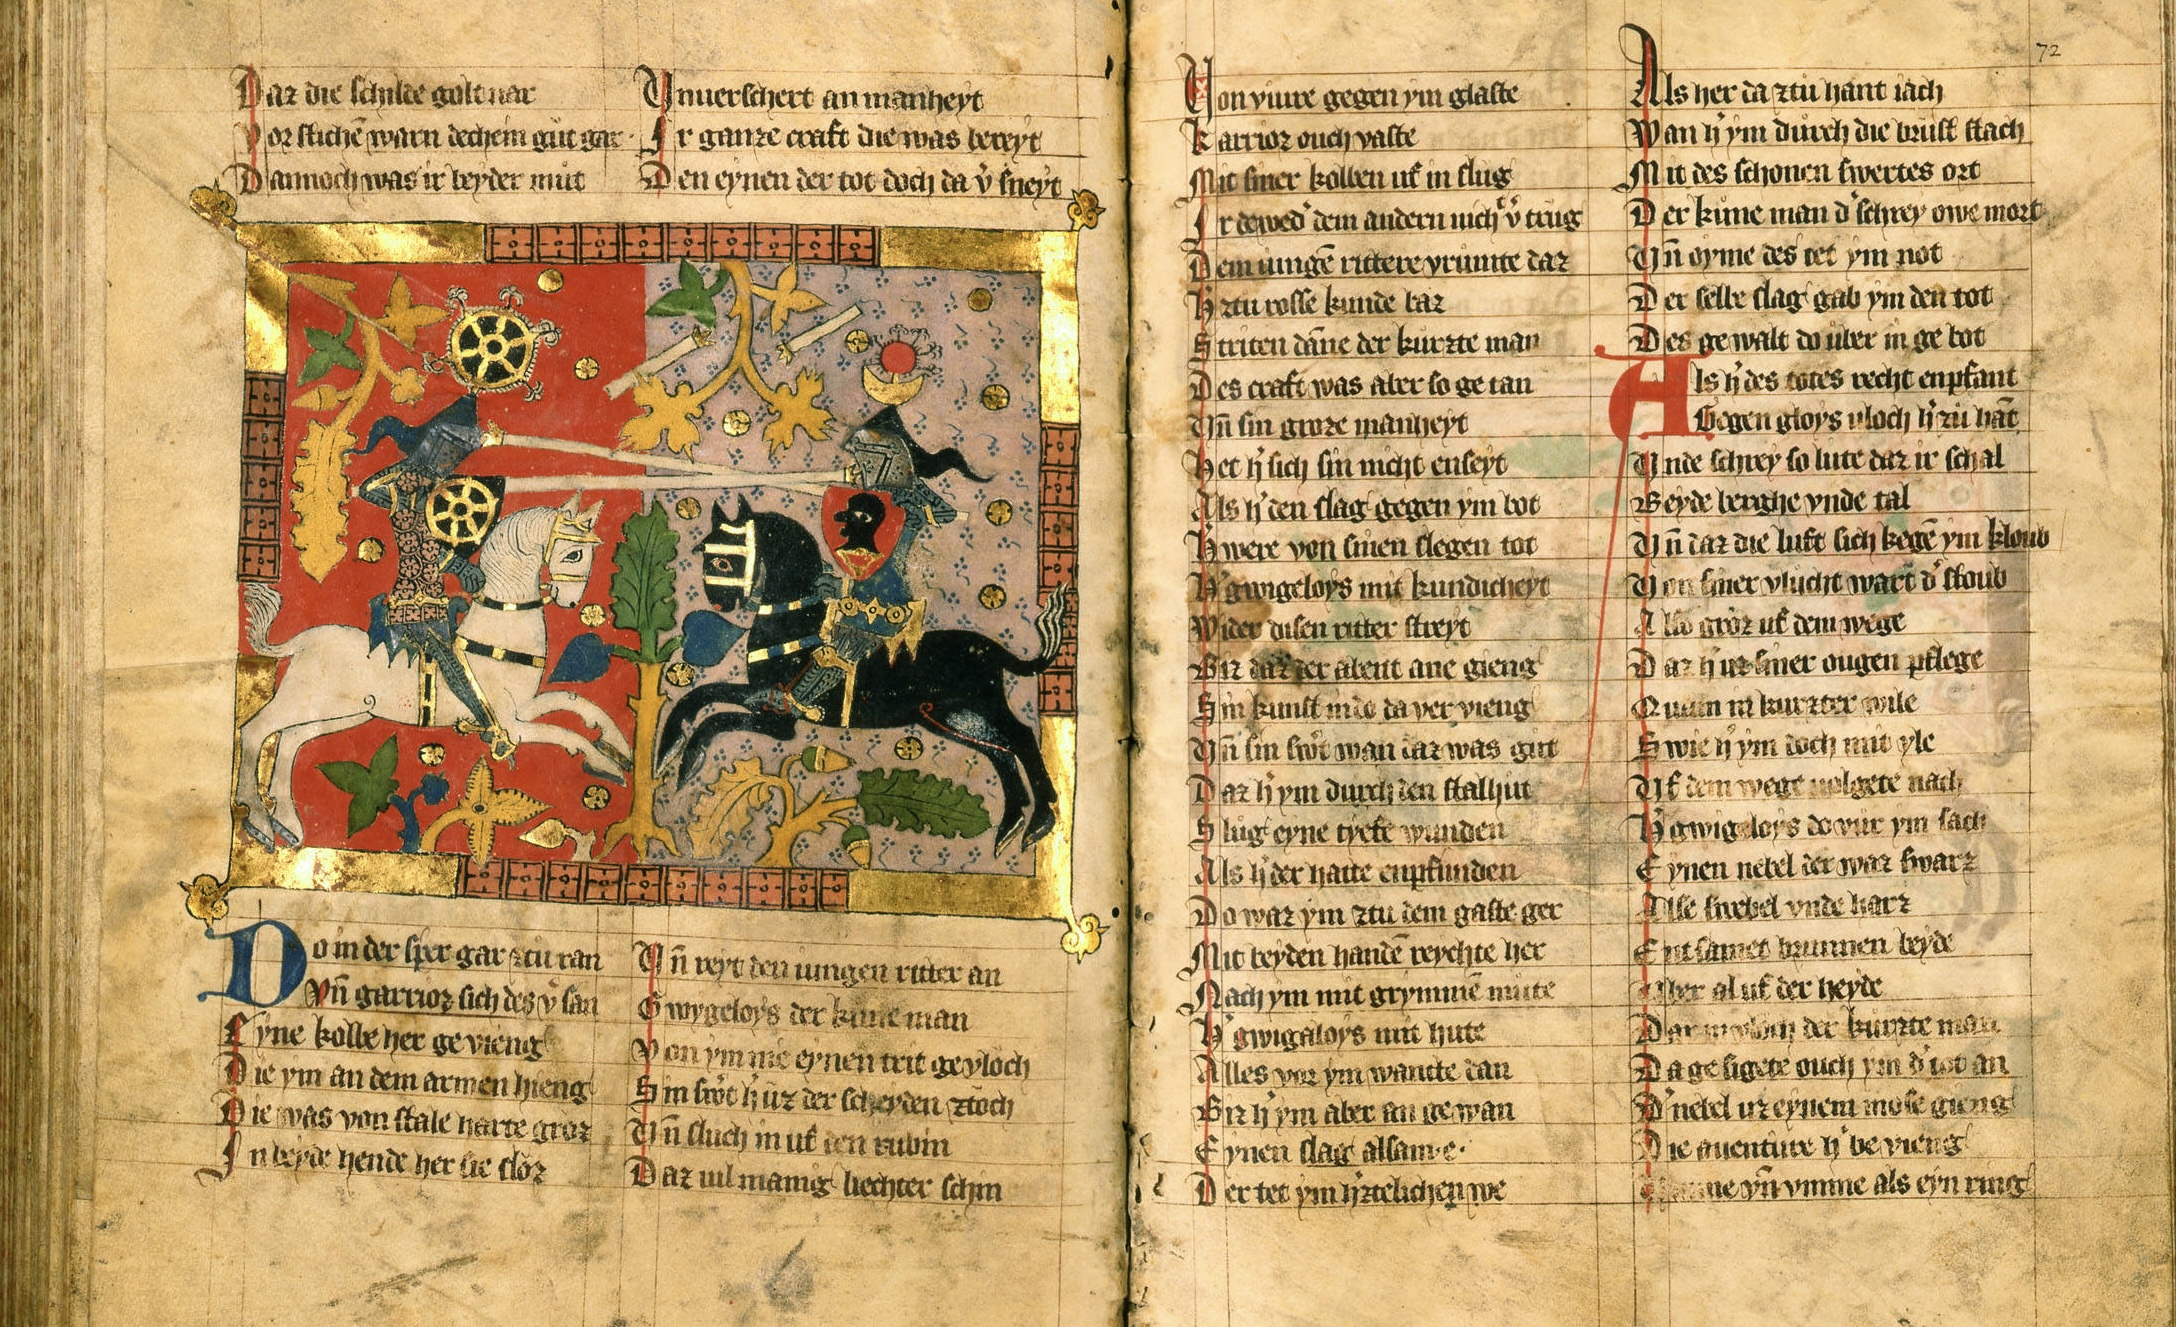 Daz die schilde golt var
Vor stichē warn dechein gut gar
Dannoch was ir beyder mut
Vnuerschert an manheyt
Ir ganze craft die was bereyt
Den eynen der tot doch da v̾sneyt
Do in der sper gar ztu ran
Vn̄ garrioz sich des v̾san
Eyne kolbe her ge vieng
Die ym an dem armen hieng
Die was von stale harte groz
In beyde hende her sie sloz
Vn̄ reyt den iungen ritter an
Gwygeloys der kune man
Von ym nie eynen trit gevloch
Sin sw̾t h̾ uz der scheyden ztoch
Vn̄ sluch in uf den rubin
Daz uil manig liechter schin
Von viure gegen ym glaste
Karrioz ouch vaste
Mit siner kolben uf in slug
Ir dewed̾ dem andern nich v̾trug
Dem iungē rittere vrumte daz
H̾ ztu rosse kunde baz
Striten dāne der kurzte man
Des craft was aber so ge tan
Vn̄ sin groze manheyt
Het h̾ sich sin nicht enseyt
Als h̾ den slag gegen ym bot
H̾ were von sinen slegen tot
H̾ gwigeloys mit kundicheyt
Wider disen ritter streyt
Biz daz der abent ane gieng
Sin kunst in do da ver vieng
Vn̄ sin sw̾t wan daz was gut
Daz h̾ ym durch den stalhut
Slug eyne tyefe wunden
Als h̾ der hatte enpfunden
Do waz ym ztu dem gaste ger
Mit beyden handē reychte her
Nach ym mit grymmē mute
H̾ gwigeloys mit hute
Alles vor ym wante dan
Biz h̾ ym aber an ge wan
Eynen slag alsam e
Der tet ym h̾ztelichen we
72
Als her da ztu hant iach
Wan h̾ ym durch die brust stach
Mit des schonen swertes ort
Der kune man d̾ schrey owe mort
Vn̄ oyme des tet ym not
Der selbe slag gab ym den tot
Des gewalt do uber in ge bot
Als h̾ des totes recht enpfant
Gegen gloys vloch h̾ zu hāt
Vnde schrey so lute daz ir schal
Beyde berghe vnde tal
Vn̄ daz die luft sich kegē ym kloub
Von siner vlucht wart d̾ stoub
Also groz uf dem wege
Daz h̾ uz siner ougen pflege
Quam in kurzter wile
Swie h̾ ym doch mit yle
Vf dem wege uolgete nach
H̾ gwigeloys do vur ym sach
Eynen nebel der waz swarz
Alse swebel vnde harz
Entsamet brunnen beyde
Vber al uf der heyde
Dar in vloch der kurzte man
Da ge sigete ouch ym d̾ tot an
D̾ nebel uz eynem mose gieng
Die auenture h̾ be vieng
vmme vn̄ vmme als eyn ring